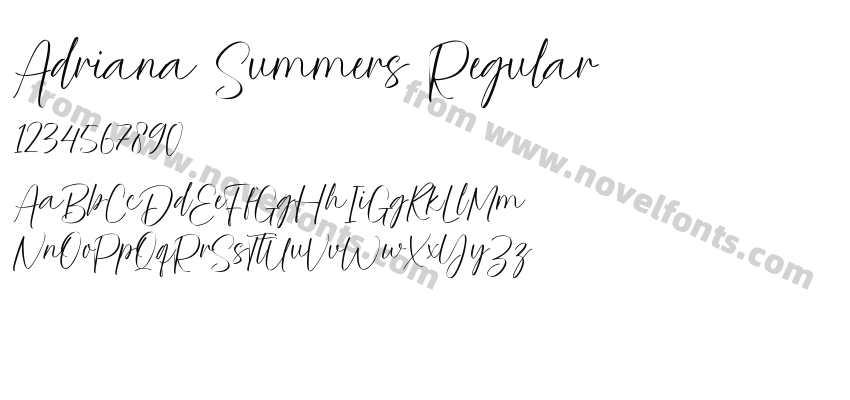 Adriana Summers Regular
1234567890
AaBbCcDdEeFfGgHhIiGgRkLlMm
NnOoPpQqRrSsTtUuVvWwXxYyZz
from www.novelfonts.com
from www.novelfonts.com